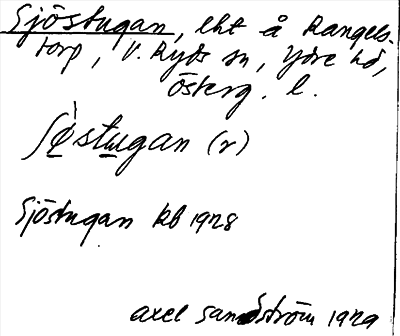 Sjöstugan, lht å Rangels-
torp, V. Ryds sn, Ydre hd,
Österg. l.
ʃø̀stugan (r)
Sjöstugan kb 1928
Axel Sandström 1929